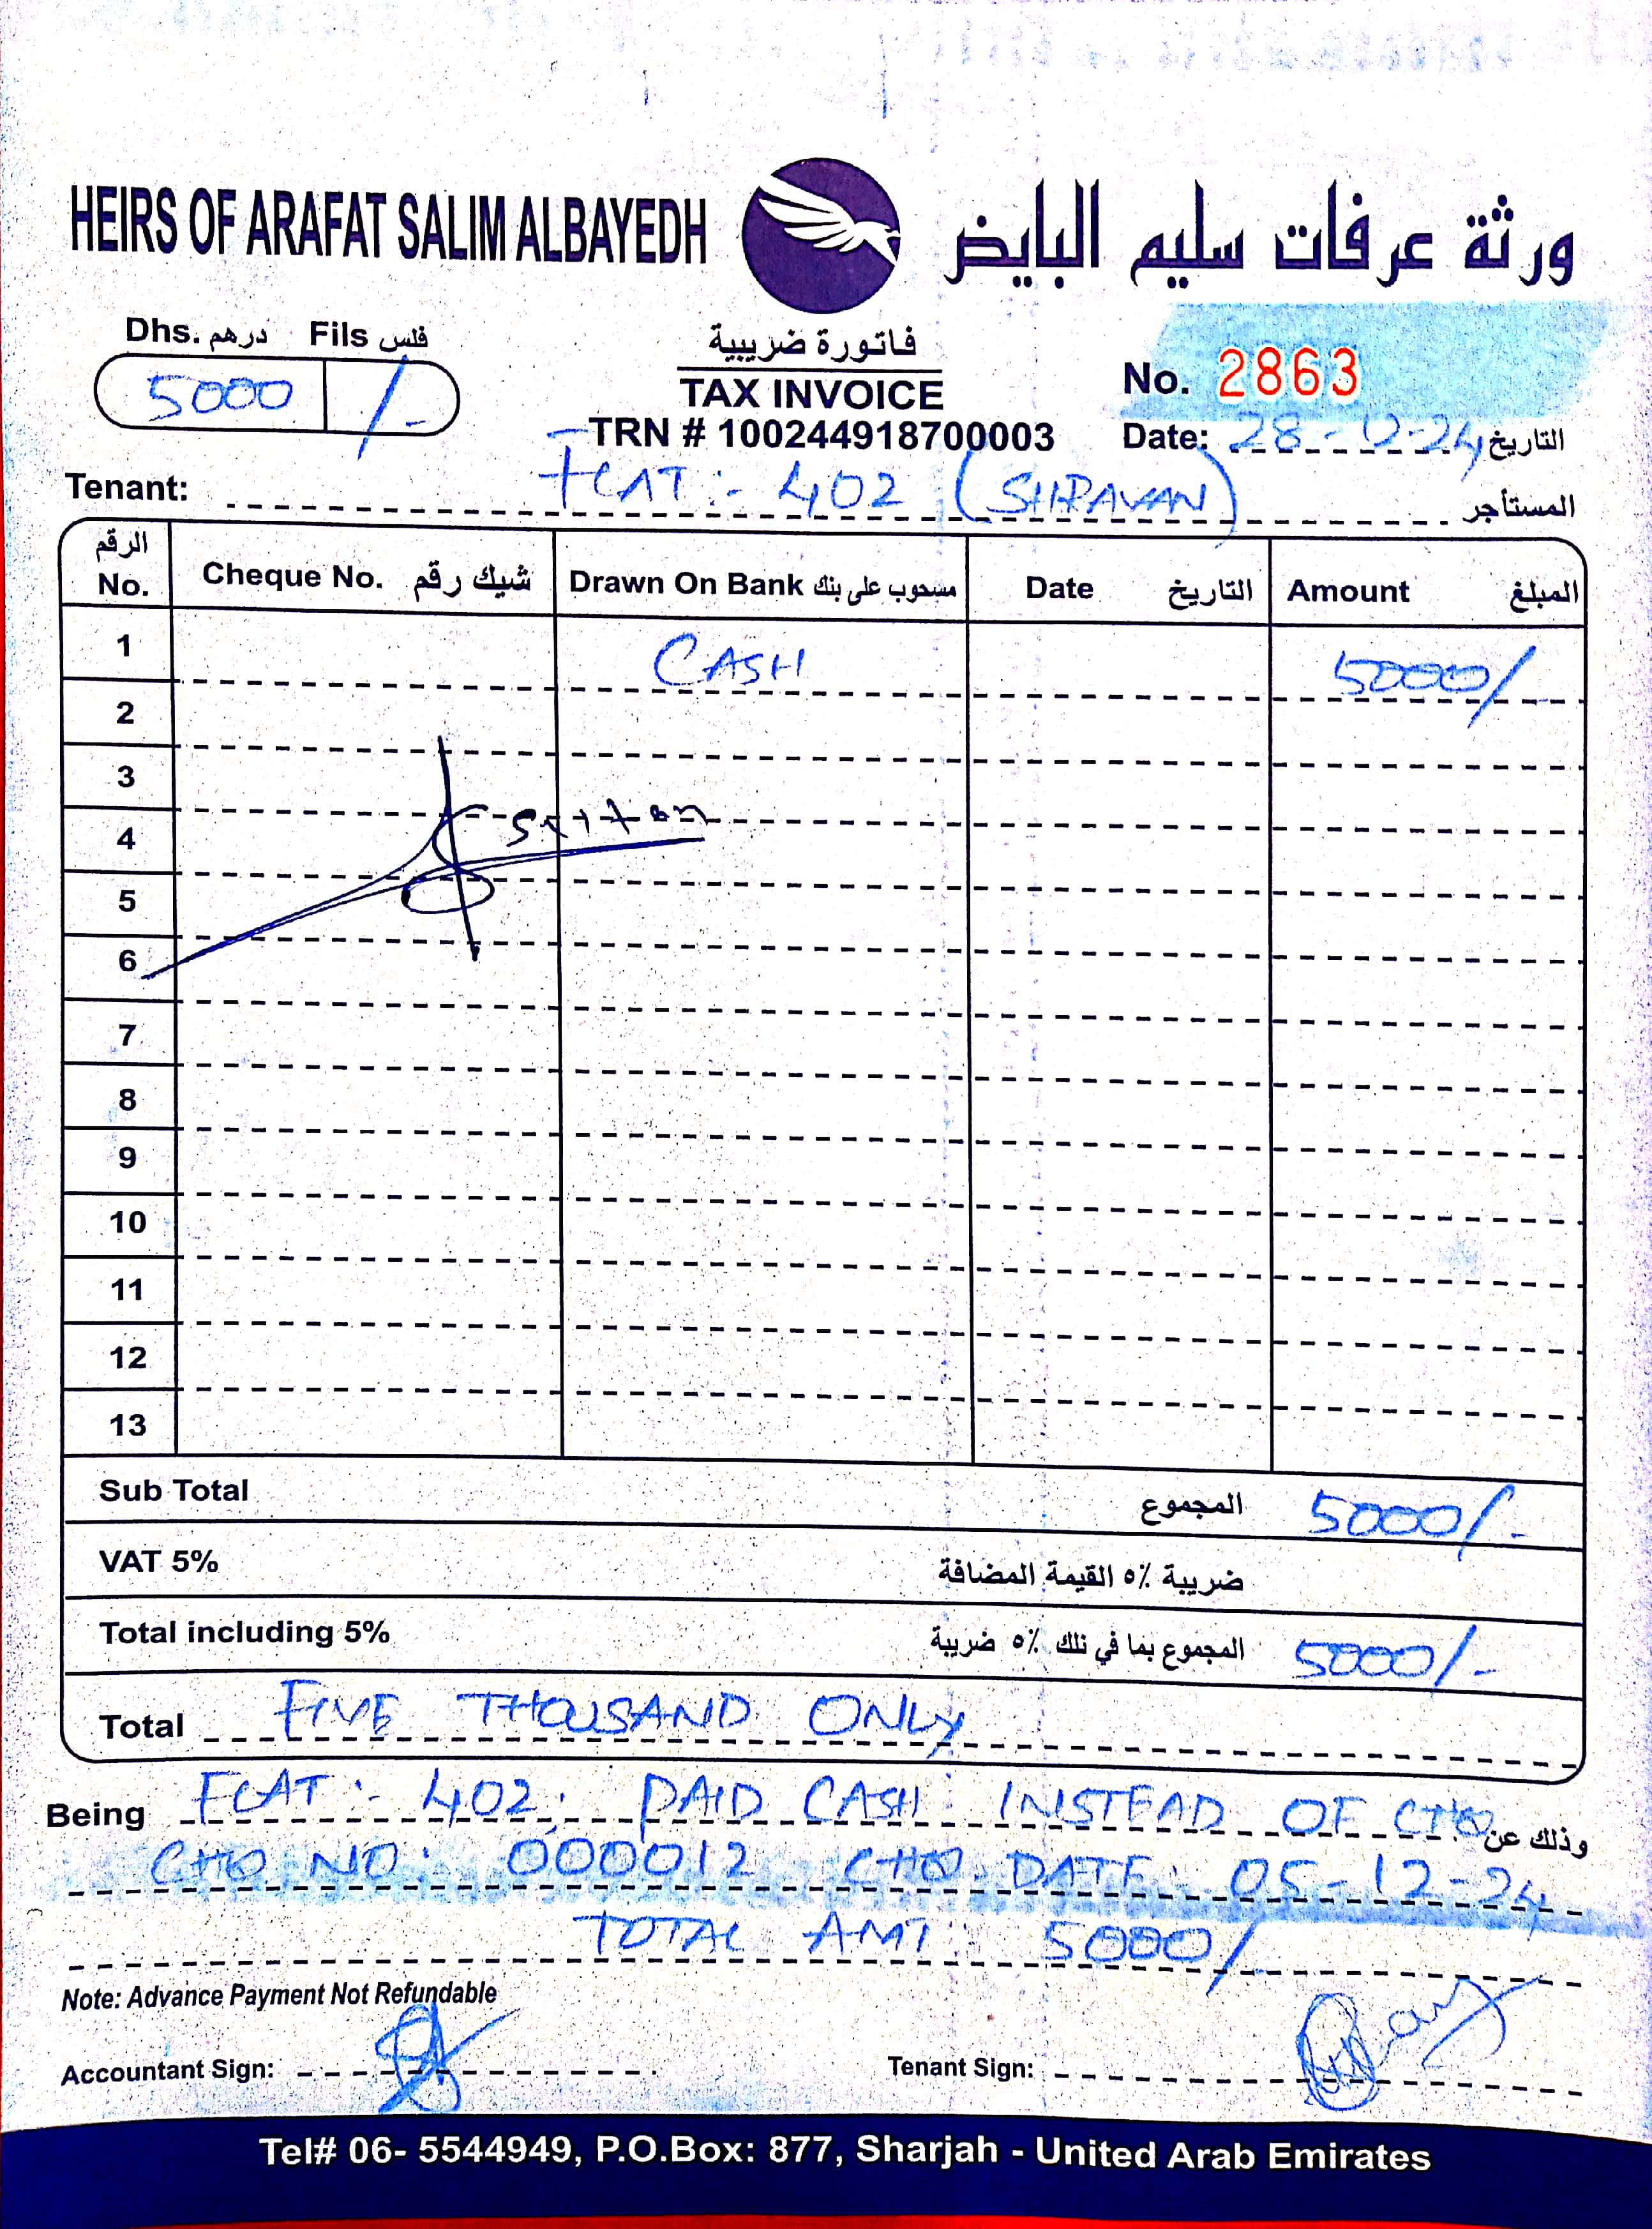 HEIRS OF ARAFAT SALIM ALBAYEDH ورثة عرفات سليم البايض
Dhs. درهم Fils فلس
5000 /-
فاتورة ضريبية
TAX INVOICE
TRN # 100244918700003
No. 2863
Date: 28-12-24 التاريخ
Tenant: FLAT:- 402 (SHRAVAN) المستأجر
الرقم No. Cheque No. شيك رقم Drawn On Bank مسحوب على بنك Date التاريخ Amount المبلغ
1 CASH 5000/
2
3
4
5
6
7
8
9
10
11
12
13
Sub Total المجموع 5000/-
VAT 5% ضريبة ٥٪ القيمة المضافة
Total including 5% المجموع بما في ذلك ٥٪ ضريبة 5000/-
Total FIVE THOUSAND ONLY
Being FLAT:- 402. PAID CASH INSTEAD OF CHQ وذلك عن
CHQ NO: 000012 CHQ DATE: 05-12-24
TOTAL AMT: 5000/
Note: Advance Payment Not Refundable
Accountant Sign: Tenant Sign:
Tel# 06- 5544949, P.O.Box: 877, Sharjah - United Arab Emirates